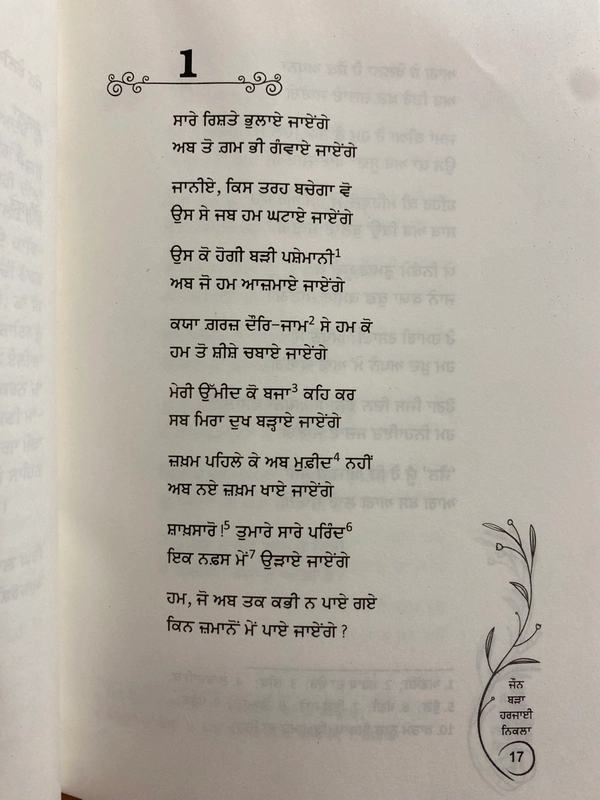 1
ਸਾਰੇ ਰਿਸ਼ਤੇ ਭੁਲਾਏ ਜਾਏਂਗੇ
ਅਬ ਤੋ ਗ਼ਮ ਭੀ ਗੰਵਾਏ ਜਾਏਂਗੇ
ਜਾਨੀਏ, ਕਿਸ ਤਰਹ ਬਚੇਗਾ ਵੋ
ਉਸ ਸੇ ਜਬ ਹਮ ਘਟਾਏ ਜਾਏਂਗੇ
ਉਸ ਕੋ ਹੋਗੀ ਬੜੀ ਪਸ਼ੇਮਾਨੀ¹
ਅਬ ਜੋ ਹਮ ਆਜ਼ਮਾਏ ਜਾਏਂਗੇ
ਕਯਾ ਗ਼ਰਜ਼ ਦੌਰਿ-ਜਾਮ² ਸੇ ਹਮ ਕੋ
ਹਮ ਤੋ ਸ਼ੀਸ਼ੇ ਚਬਾਏ ਜਾਏਂਗੇ
ਮੇਰੀ ਉੱਮੀਦ ਕੋ ਬਜਾ³ ਕਹਿ ਕਰ
ਸਬ ਮਿਰਾ ਦੁਖ ਬੜ੍ਹਾਏ ਜਾਏਂਗੇ
ਜ਼ਖ਼ਮ ਪਹਿਲੇ ਕੇ ਅਬ ਮੁਫ਼ੀਦ⁴ ਨਹੀਂ
ਅਬ ਨਏ ਜ਼ਖ਼ਮ ਖਾਏ ਜਾਏਂਗੇ
ਸ਼ਾਖ਼ਸਾਰੋ!⁵ ਤੁਮਾਰੇ ਸਾਰੇ ਪਰਿੰਦ⁶
ਇਕ ਨਫ਼ਸ ਮੇਂ⁷ ਉੜਾਏ ਜਾਏਂਗੇ
ਹਮ, ਜੋ ਅਬ ਤਕ ਕਭੀ ਨ ਪਾਏ ਗਏ
ਕਿਨ ਜ਼ਮਾਨੋਂ ਮੇਂ ਪਾਏ ਜਾਏਂਗੇ ?
ਜੌਨ
ਬੜਾ
ਹਰਜਾਈ
ਨਿਕਲਾ
17